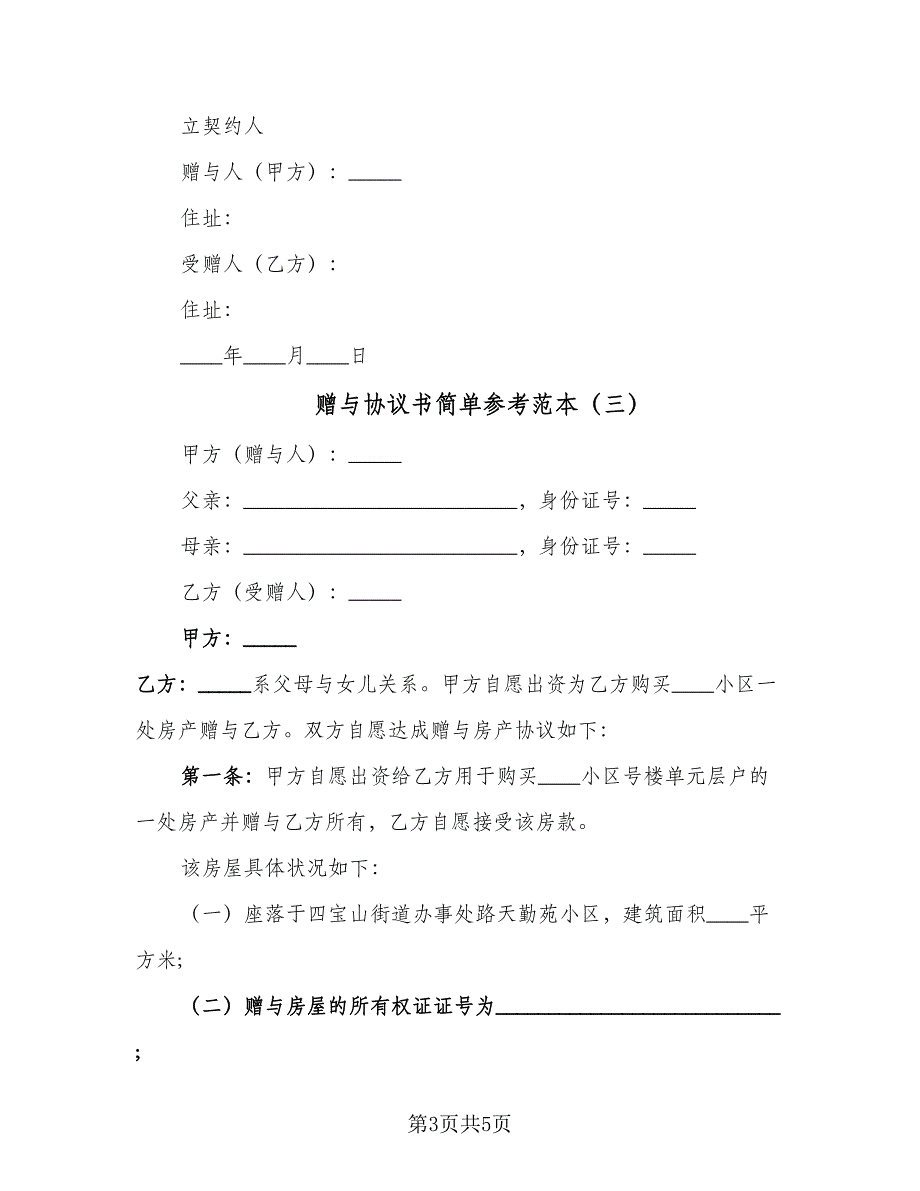 立契约人
赠与人（甲方）：_____
住址：
受赠人（乙方）：
住址：
____年____月____日
赠与协议书简单参考范本（三）
甲方（赠与人）：_____
父亲：__________________________，身份证号：_____
母亲：__________________________，身份证号：_____
乙方（受赠人）：_____
甲方：_____
乙方：_____系父母与女儿关系。甲方自愿出资为乙方购买____小区一
处房产赠与乙方。双方自愿达成赠与房产协议如下：
第一条：甲方自愿出资给乙方用于购买____小区号楼单元层户的
一处房产并赠与乙方所有，乙方自愿接受该房款。
该房屋具体状况如下：
（一）座落于四宝山街道办事处路天勤苑小区，建筑面积____平
方米;
（二）赠与房屋的所有权证证号为___________________________
;
第3页共5页